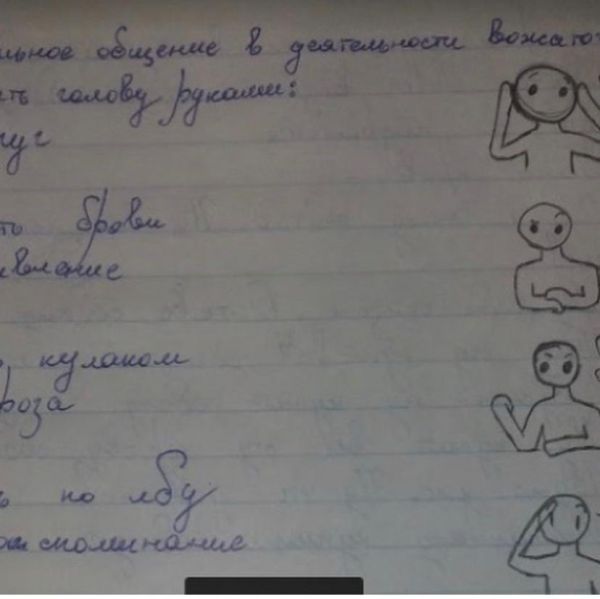 льное общение в деятельности вожато
ть голову руками:
пуг
ть брови
ивление
кулаком
роза
ь по лбу
споминание